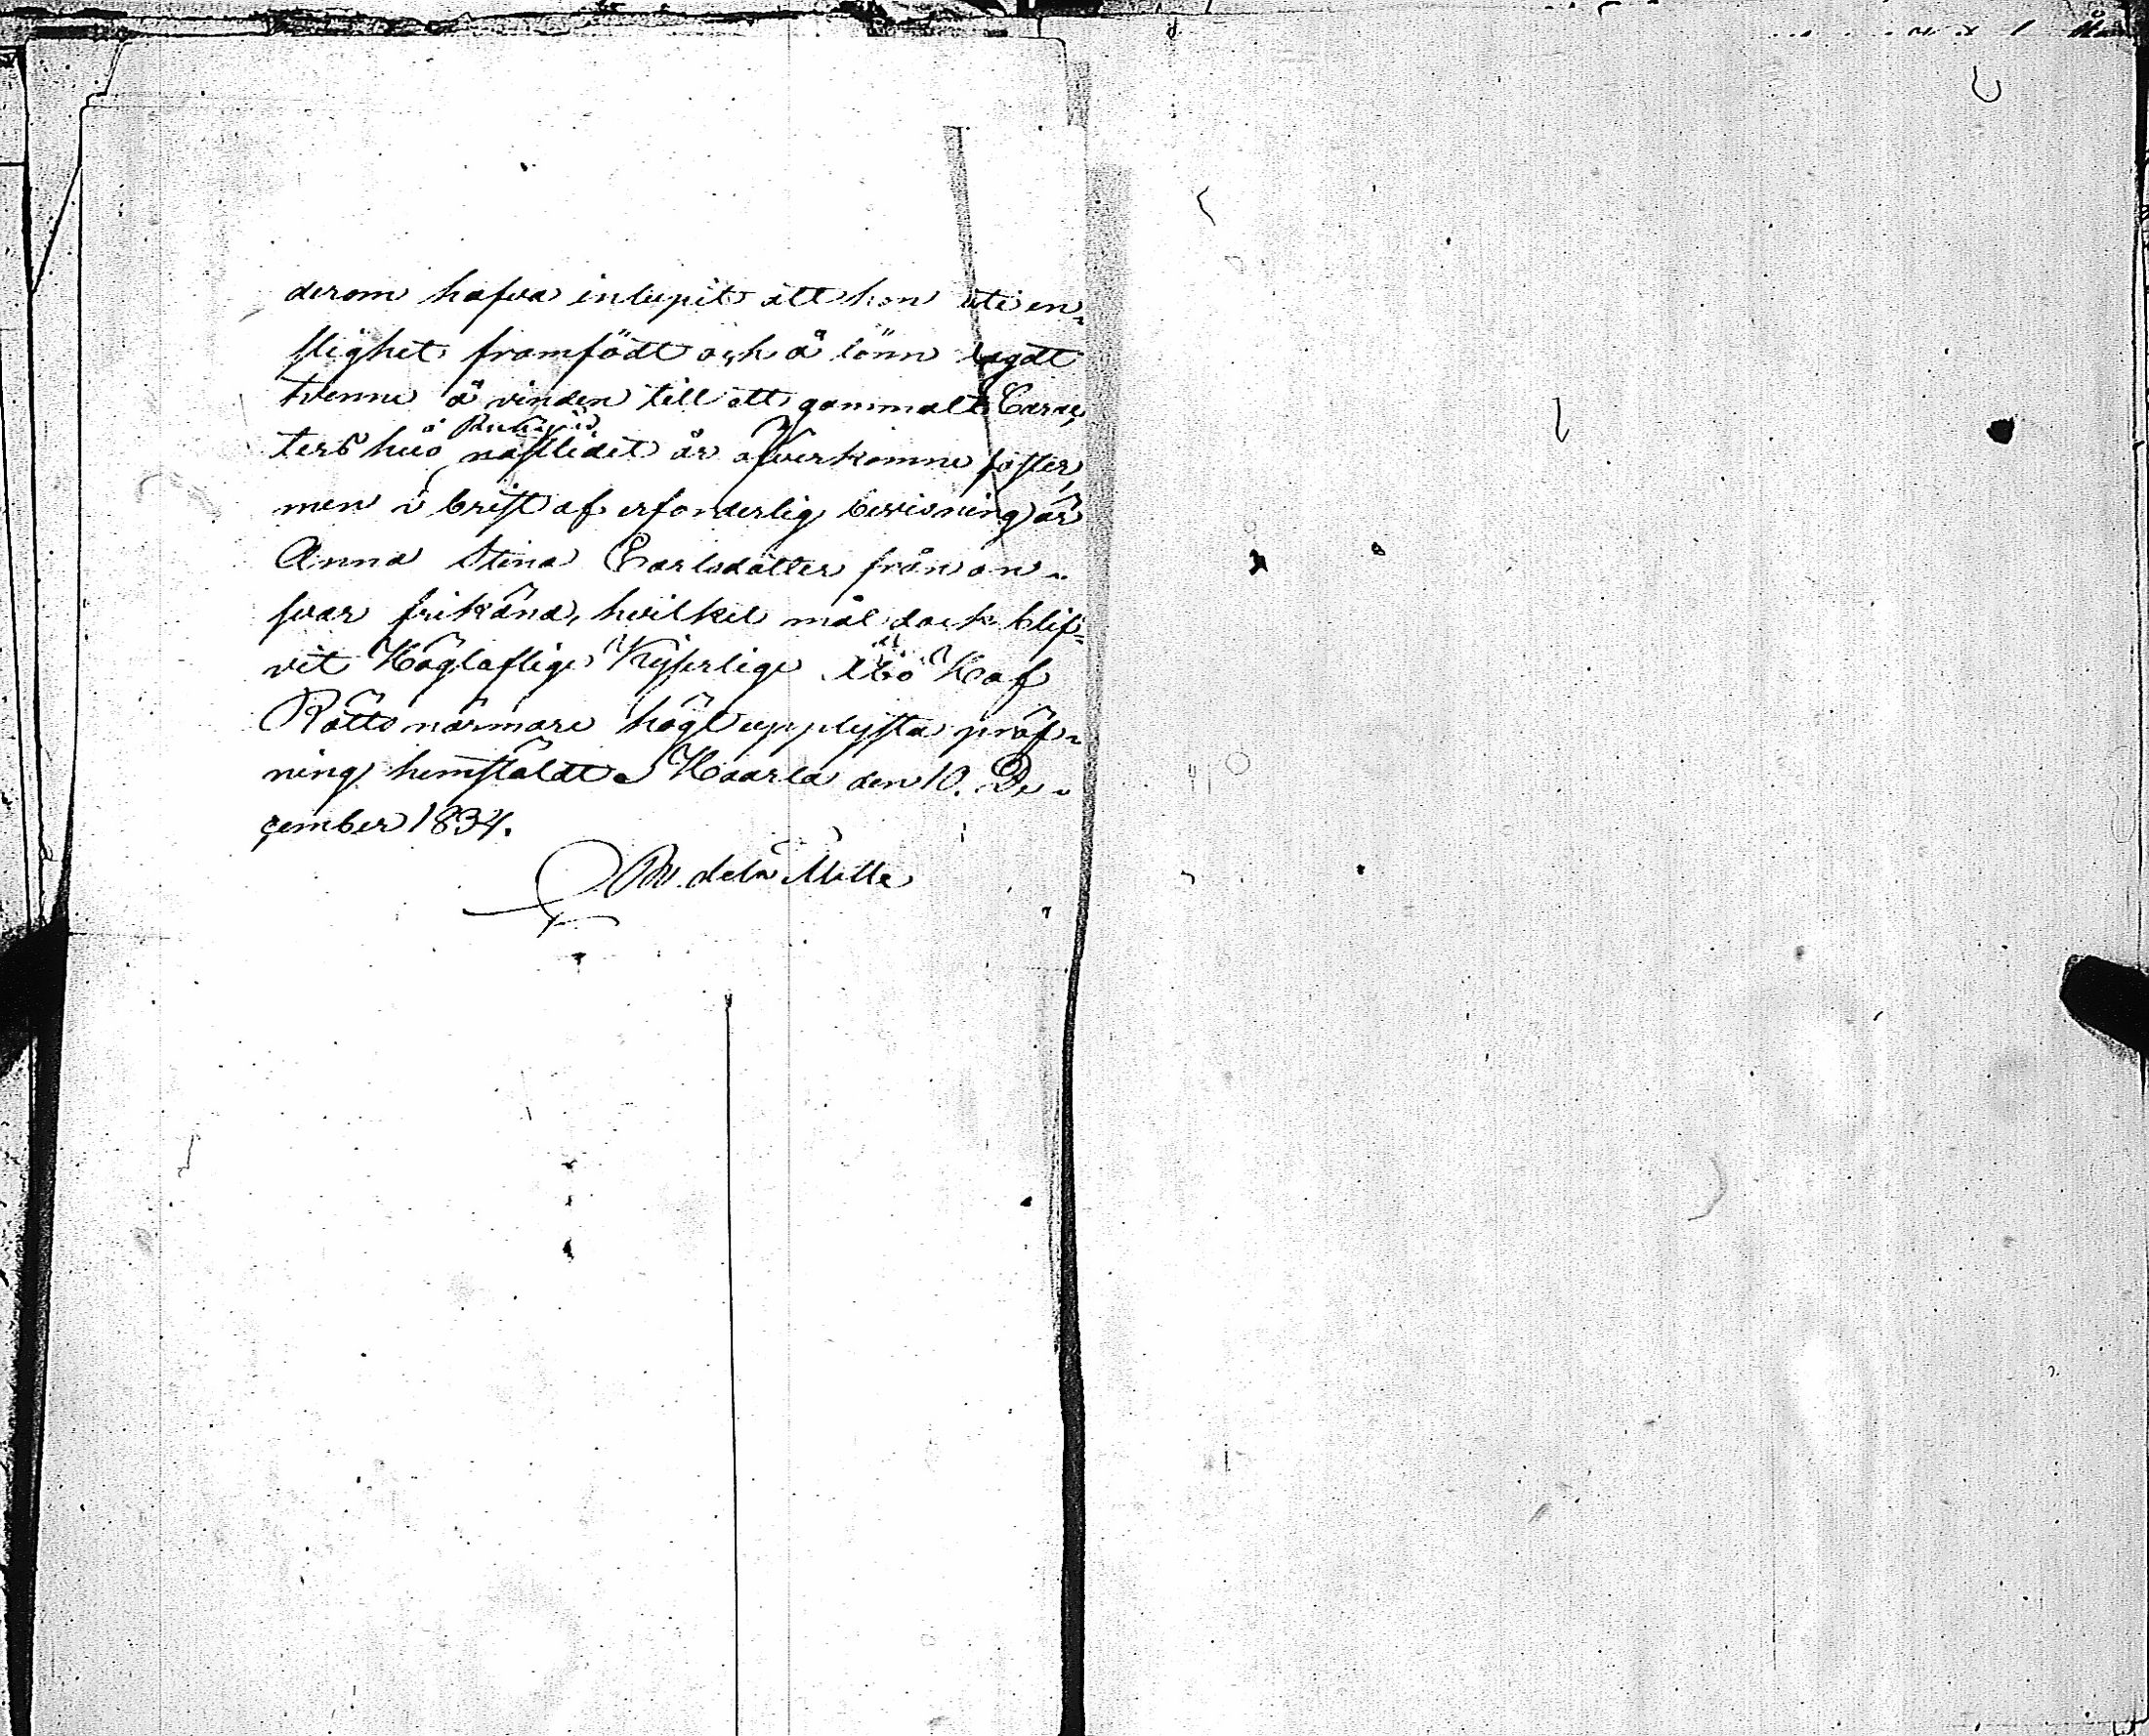 derom hafva inlupit att hon uti en¬
slighet framfödt och å lönn lagdt
tvenne å vinden till ett gammalt Carac¬
ters hus nästledet år afverkomne foster,
men i brist af erforderlig bevisning är
Anna Stina Carlsdotter från an¬
svar frikänd, hvilket mål dock blif¬
vit Höglaflige Kejserlige Åbo Hof
Rätts närmare högtupplysta pröf¬
ning hemstäldt. Haarla den 10. De¬
cember 1834.
de la Motte